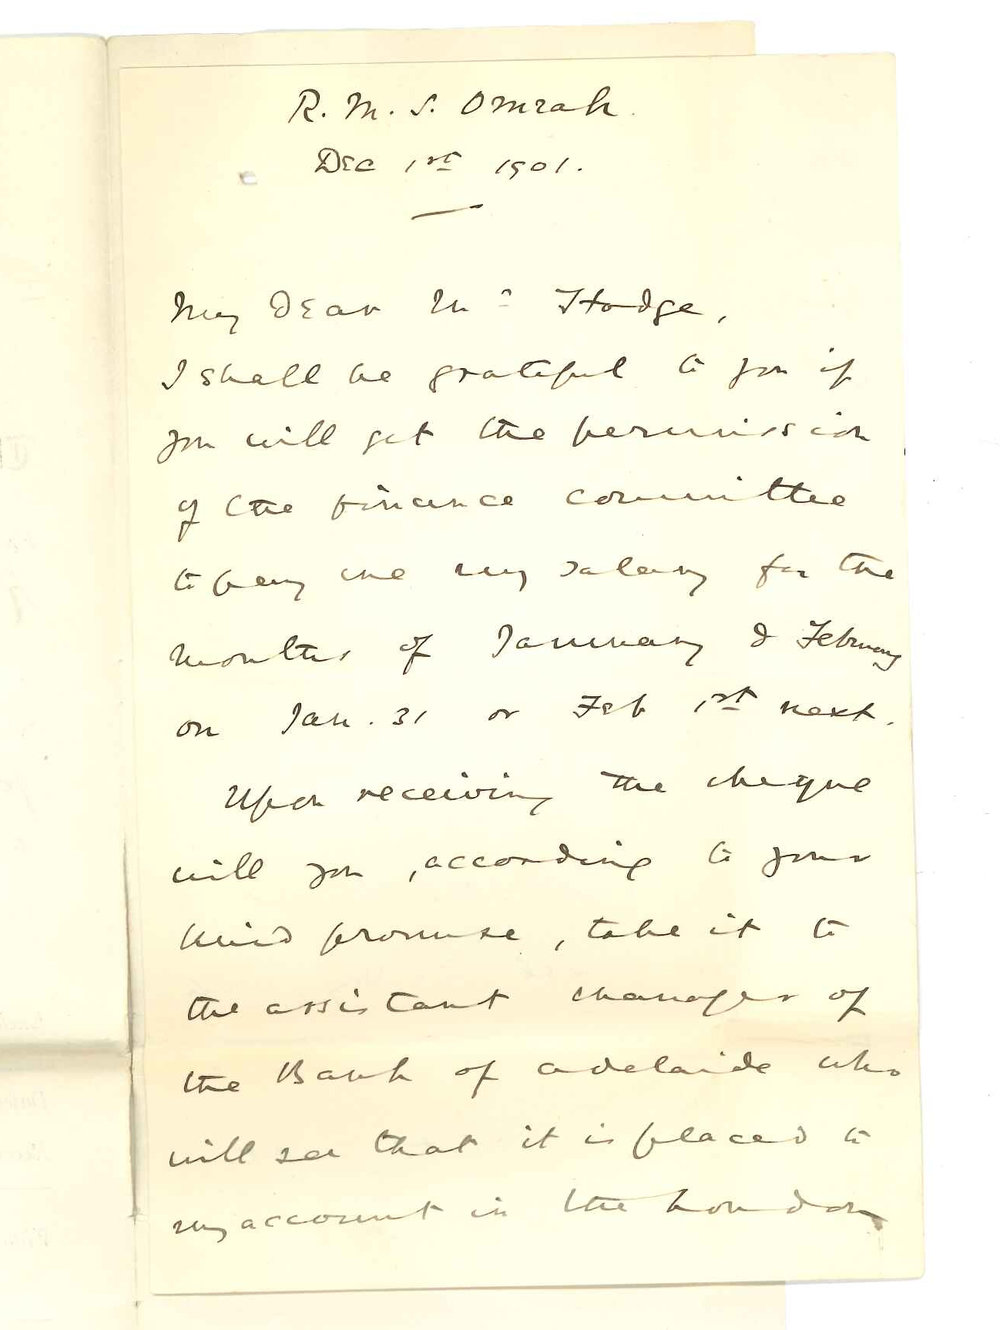 R. M. S. Omrah.
Dec 1st 1901.
My Dear Mr Hodge,
I shall be grateful to you if
you will get the permission
of the finance committee
to pay me my salary for the
months of January & February
on Jan. 31 or Feb 1st next.
Upon receiving the cheque
will you, according to your
kind promise, take it to
the assistant manager of
the Bank of Adelaide who
will see that it is placed to
my account in the London